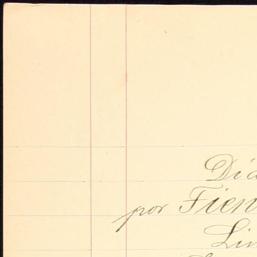 Dia
por Fien
Lin